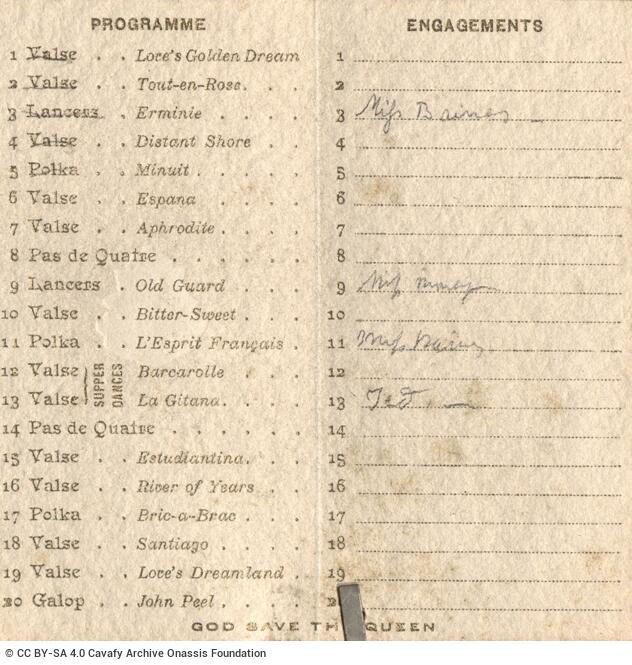 PROGRAMME
1 Valse . . Love's Golden Dream
2 Valse . . Tout-en-Rose . . .
3 Lancers . Erminie . . . .
4 Valse . . Distant Shore . . .
5 Polka . . Minuit . . . . .
6 Valse . . Espana . . . .
7 Valse . . Aphrodite . . . .
8 Pas de Quatre . . . . . .
9 Lancers . Old Guard . . . .
10 Valse . . Bitter-Sweet . . .
11 Polka . . L'Esprit Français .
12 Valse Barcarolle . . .
13 Valse La Gitana . . . .
SUPPER DANCES
14 Pas de Quatre . . . . . .
15 Valse . . Estudiantina . . .
16 Valse . . River of Years . .
17 Polka . . Bric-a-Brac . . .
18 Valse . . Santiago . . . .
19 Valse . . Love's Dreamland .
20 Galop . . John Peel . . . .
ENGAGEMENTS
1
2
3 Miss Baines
4
5
6
7
8
9 Miss
10
11 Miss Baines
12
13 Ted
14
15
16
17
18
19
GOD SAVE TH QUEEN
© CC BY-SA 4.0 Cavafy Archive Onassis Foundation